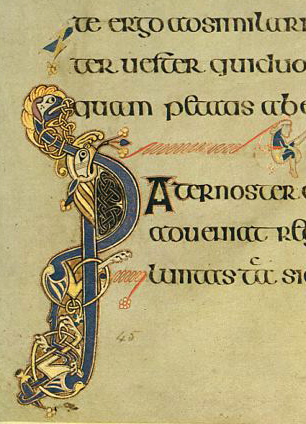 te ergo adsimilari
ter uester quiduo
quam petatis abe
Aternoster
adueniat re
luntas tā sic
45